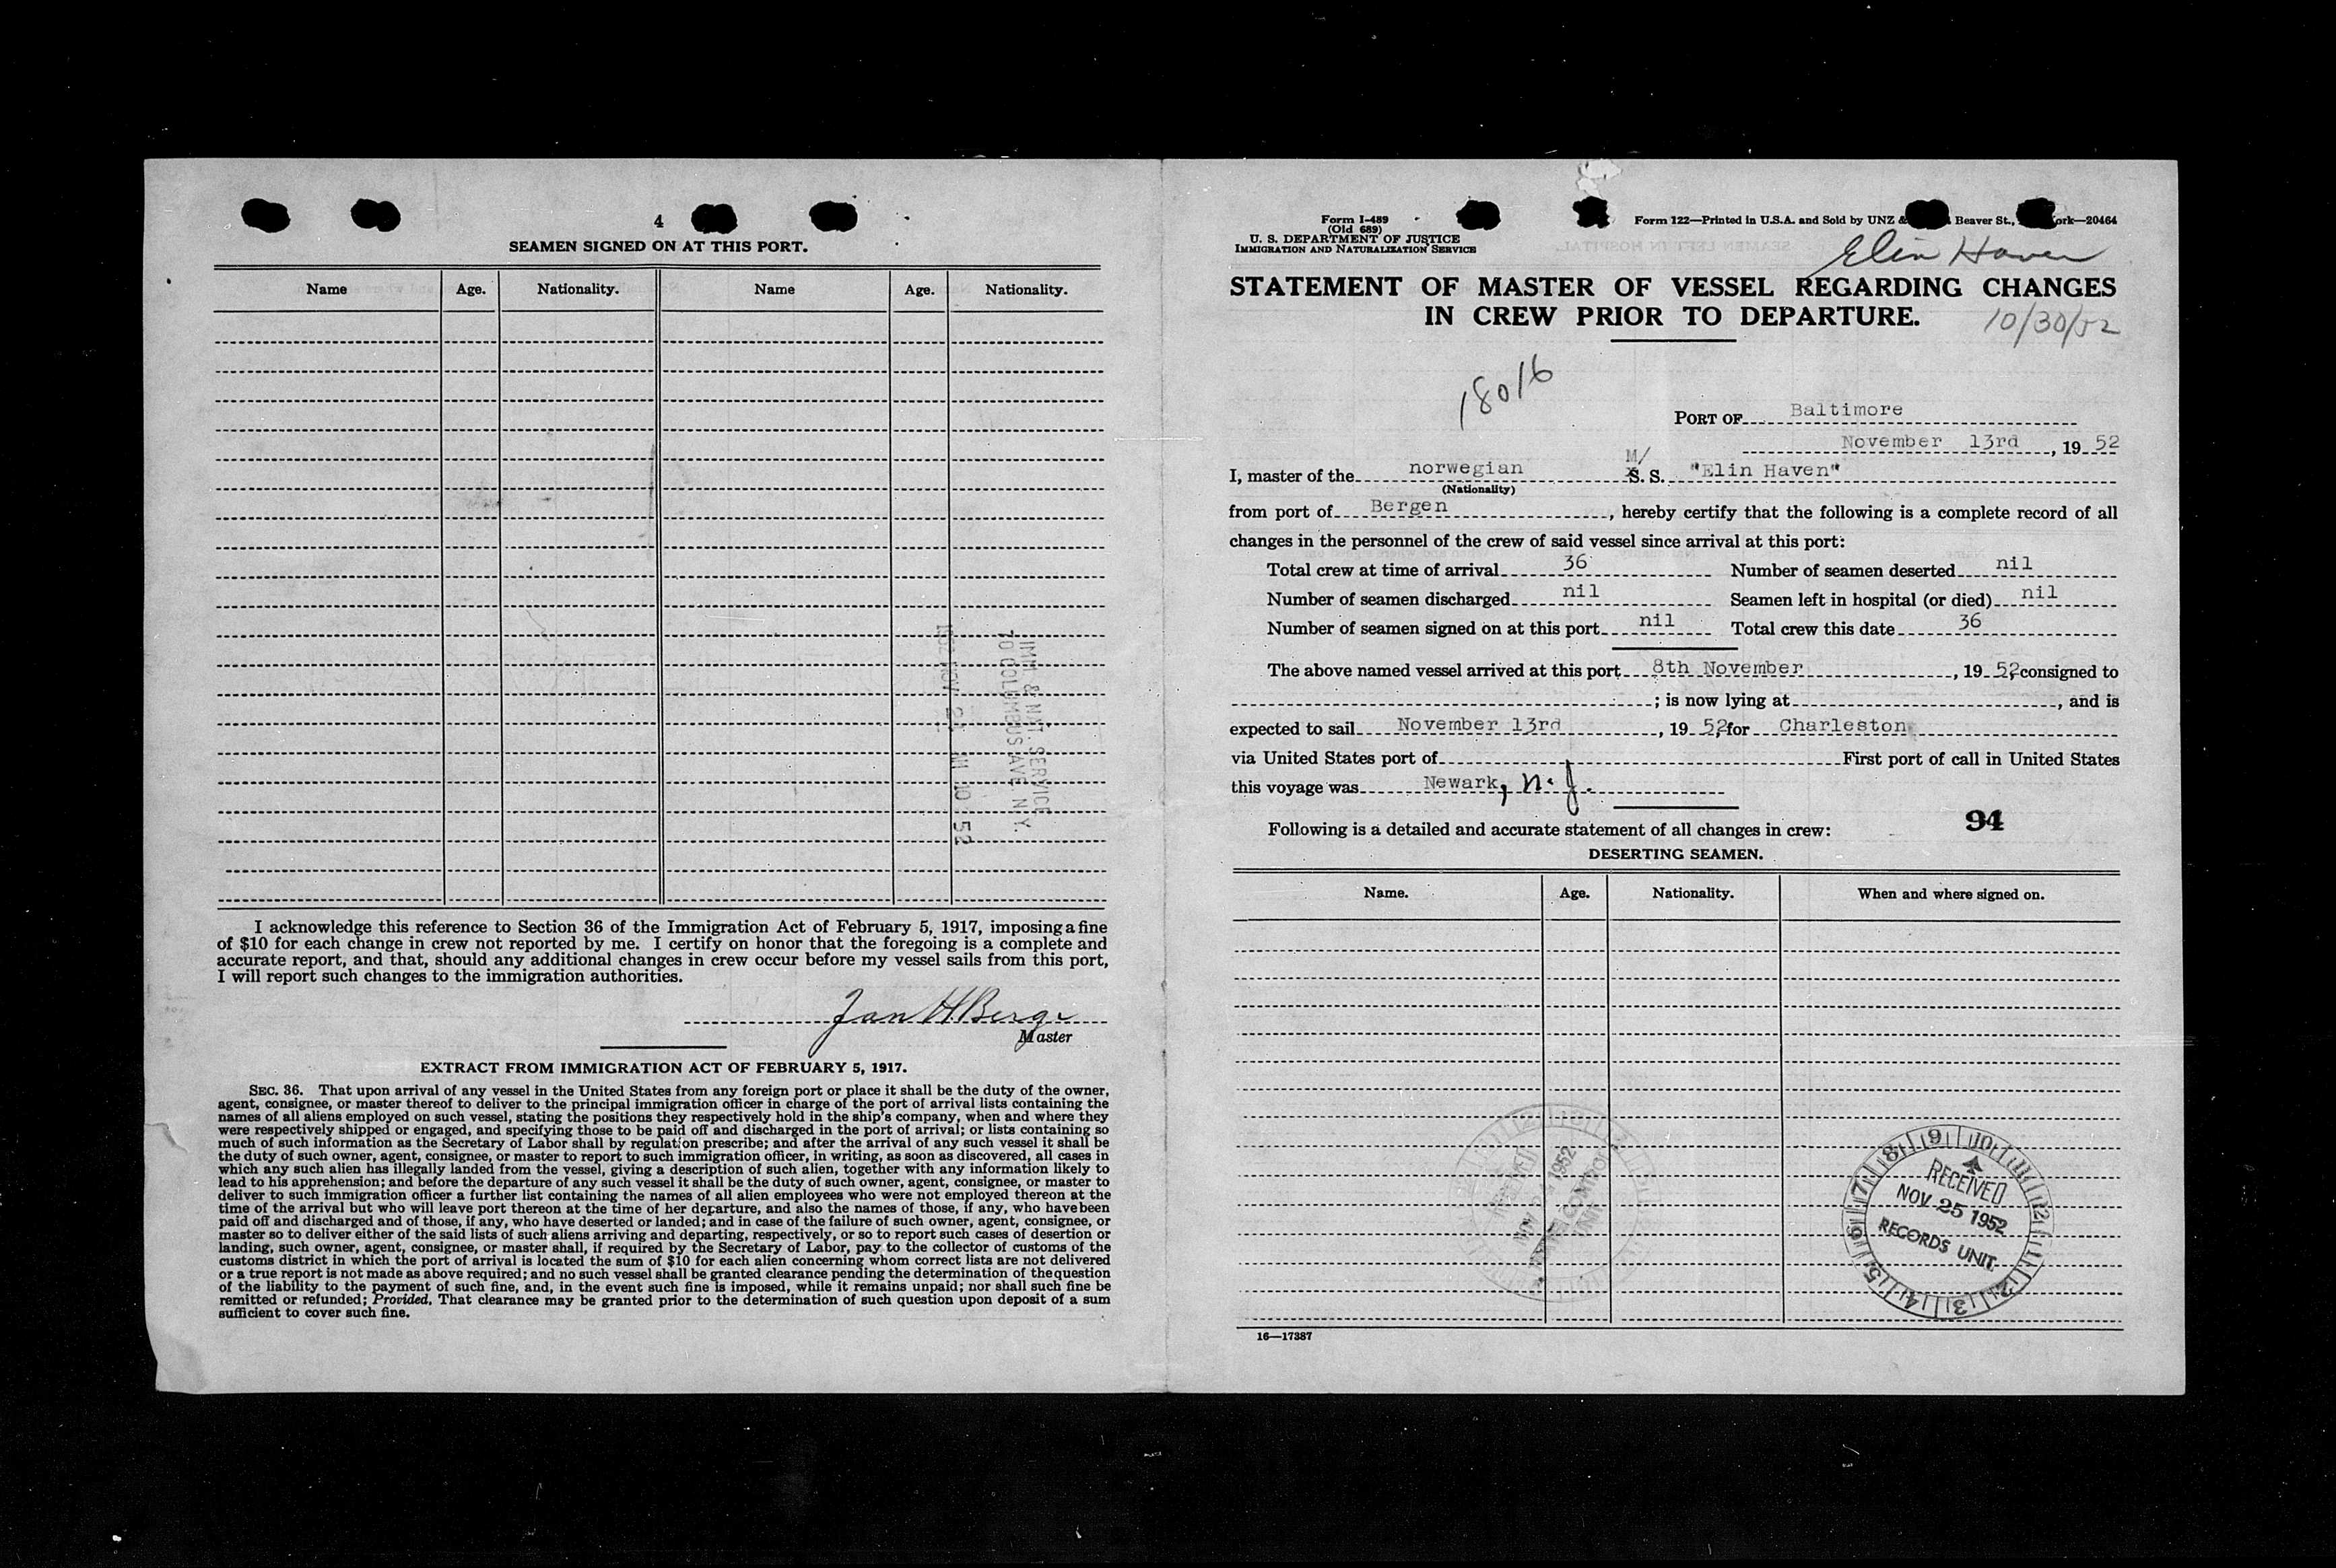 4
SEAMEN SIGNED ON AT THIS PORT.
Name Age. Nationality. Name Age. Nationality.
IMM. & NAT. SERVICE
70 COLUMBUS AVE. N.Y.
1952 NOV 24 AM 10 52
I acknowledge this reference to Section 36 of the Immigration Act of February 5, 1917, imposing a fine
of $10 for each change in crew not reported by me. I certify on honor that the foregoing is a complete and
accurate report, and that, should any additional changes in crew occur before my vessel sails from this port,
I will report such changes to the immigration authorities.
Jan H. Berge
Master
EXTRACT FROM IMMIGRATION ACT OF FEBRUARY 5, 1917.
SEC. 36. That upon arrival of any vessel in the United States from any foreign port or place it shall be the duty of the owner,
agent, consignee, or master thereof to deliver to the principal immigration officer in charge of the port of arrival lists containing the
names of all aliens employed on such vessel, stating the positions they respectively hold in the ship's company, when and where they
were respectively shipped or engaged, and specifying those to be paid off and discharged in the port of arrival; or lists containing so
much of such information as the Secretary of Labor shall by regulation prescribe; and after the arrival of any such vessel it shall be
the duty of such owner, agent, consignee, or master to report to such immigration officer, in writing, as soon as discovered, all cases in
which any such alien has illegally landed from the vessel, giving a description of such alien, together with any information likely to
lead to his apprehension; and before the departure of any such vessel it shall be the duty of such owner, agent, consignee, or master to
deliver to such immigration officer a further list containing the names of all alien employees who were not employed thereon at the
time of the arrival but who will leave port thereon at the time of her departure, and also the names of those, if any, who have been
paid off and discharged and of those, if any, who have deserted or landed; and in case of the failure of such owner, agent, consignee, or
master so to deliver either of the said lists of such aliens arriving and departing, respectively, or so to report such cases of desertion or
landing, such owner, agent, consignee, or master shall, if required by the Secretary of Labor, pay to the collector of customs of the
customs district in which the port of arrival is located the sum of $10 for each alien concerning whom correct lists are not delivered
or a true report is not made as above required; and no such vessel shall be granted clearance pending the determination of the question
of the liability to the payment of such fine, and, in the event such fine is imposed, while it remains unpaid; nor shall such fine be
remitted or refunded; Provided, That clearance may be granted prior to the determination of such question upon deposit of a sum
sufficient to cover such fine.
Form I-489
(Old 689)
U. S. DEPARTMENT OF JUSTICE
IMMIGRATION AND NATURALIZATION SERVICE
Form 122—Printed in U.S.A. and Sold by UNZ & Beaver St., ork—20464
Elin Haven
STATEMENT OF MASTER OF VESSEL REGARDING CHANGES
IN CREW PRIOR TO DEPARTURE.
10/30/52
18016
PORT OF Baltimore
November 13rd, 19 52
I, master of the norwegian M/ S. S. "Elin Haven"
(Nationality)
from port of Bergen, hereby certify that the following is a complete record of all
changes in the personnel of the crew of said vessel since arrival at this port:
Total crew at time of arrival 36 Number of seamen deserted nil
Number of seamen discharged nil Seamen left in hospital (or died) nil
Number of seamen signed on at this port nil Total crew this date 36
The above named vessel arrived at this port 8th November, 19 52, consigned to
; is now lying at , and is
expected to sail November 13rd, 19 52, for Charleston
via United States port of First port of call in United States
this voyage was Newark, N.J.
94
Following is a detailed and accurate statement of all changes in crew:
DESERTING SEAMEN.
Name. Age. Nationality. When and where signed on.
RECEIVED
NOV 1952
CONTROL
UNIT
9 10 11 12 1 2 3 4 5 6 7 8
RECEIVED
NOV 25 1952
RECORDS UNIT.
16—17387